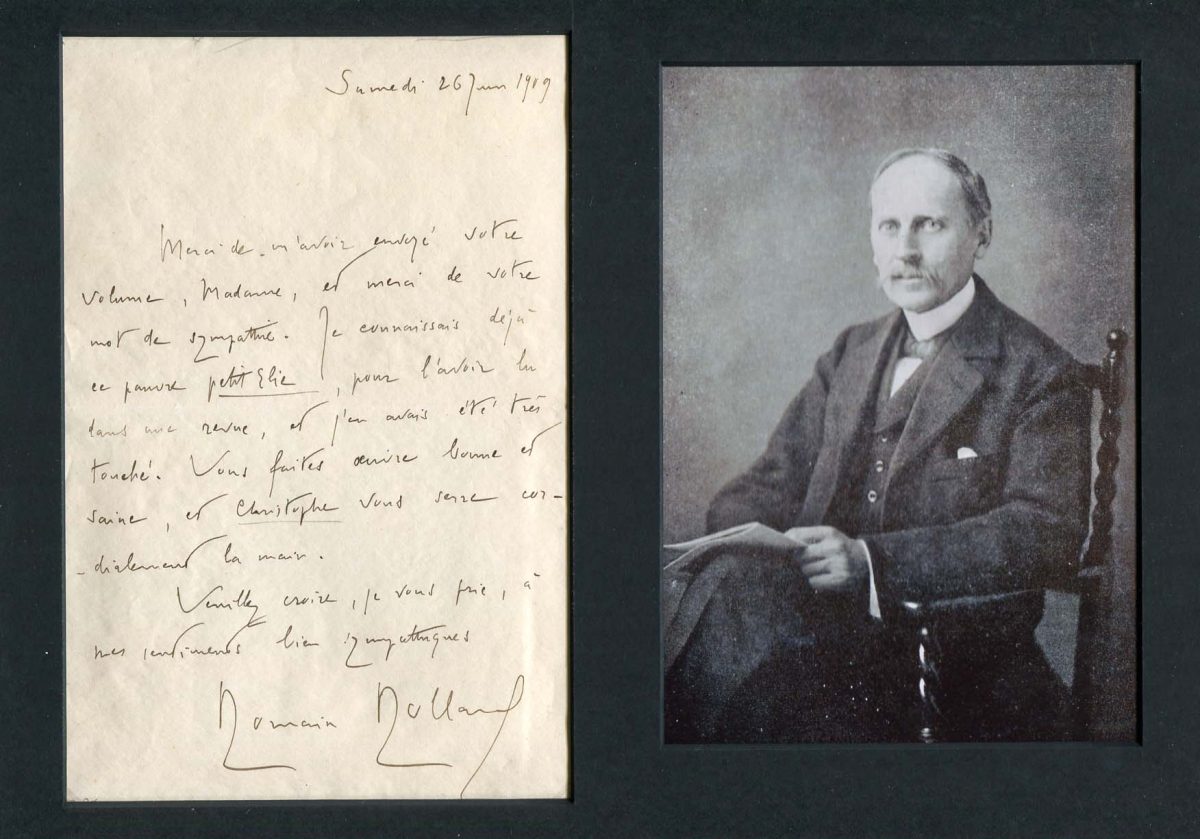 Samedi 26 Juin 1909
Merci de m'avoir envoyé votre
volume, Madame, et merci de votre
mot de sympathie. Je connaissais déjà
ce pauvre petit Elie, pour l'avoir lu
dans une revue, et j'en avais été très
touché. Vous faites œuvre bonne et
saine, et Christophe vous serre cor-
-dialement la main.
Veuillez croire, je vous prie, à
mes sentiments bien sympathiques
Romain Rolland